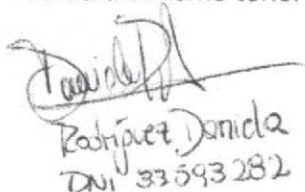 Rodríguez, Daniela
DNI 33593282